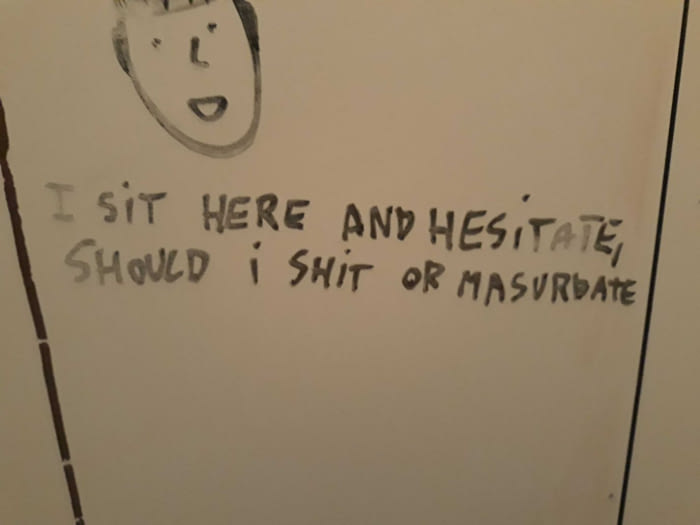 I SiT HERE AND HESiTATE,
SHOULD i SHiT OR MASURBATE